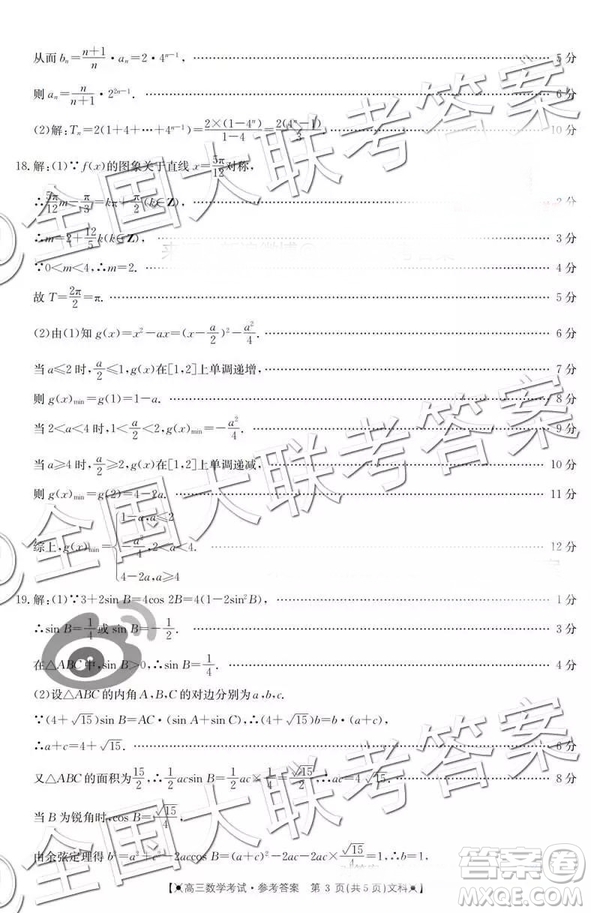 从而 bₙ=(n+1)/n·aₙ=2·4ⁿ⁻¹ ………… 5 分
则 aₙ=n/(n+1)·2²ⁿ⁻¹. ………… 6 分
(2)解:Tₙ=2(1+4+…+4ⁿ⁻¹)=2×(1-4ⁿ)/(1-4)=2(4ⁿ-1)/3 ………… 10 分
18.解:(1)∵f(x)的图象关于直线 x=5π/12对称,
∴ -π/3=kπ+ (k∈Z), ………… 2 分
∴m=2+12/5k(k∈Z). ………… 3 分
∵0<m<4,∴m=2. ………… 4 分
故 T=2π/2=π. ………… 5 分
(2)由(1)知 g(x)=x²-ax=(x-a/2)²-a²/4. ………… 6 分
当 a≤2 时,a/2≤1,g(x)在[1,2]上单调递增, ………… 7 分
则 g(x)min=g(1)=1-a. ………… 8 分
当 2<a<4 时,1<a/2<2,g(x)min=-a²/4. ………… 9 分
当 a≥4 时,a/2≥2,g(x)在[1,2]上单调递减, ………… 10 分
则 g(x)min=g(2)=4-2a. ………… 11 分
1-a,a≤2
综上,g(x)min= -a²/4,2<a<4 ………… 12 分
4-2a,a≥4
19.解:(1)∵3+2sin B=4cos 2B=4(1-2sin²B), ………… 1 分
∴sin B=1/4或 sin B=-1/2. ………… 2 分
在△ABC 中,sin B>0,∴sin B=1/4. ………… 4 分
(2)设△ABC 的内角 A,B,C 的对边分别为 a,b,c.
∵(4+√15)sin B=AC·(sin A+sin C),∴(4+√15)b=b(a+c),
∴a+c=4+√15. ………… 6 分
又△ABC 的面积为√15/2,∴1/2acsin B=1/2ac×1/4=√15/2,∴ac=4√15. ………… 8 分
当 B 为锐角时,cos B=√15/4.
由余弦定理得 b²=a²+c²-2accos B=(a+c)²-2ac-2accos B=1,∴b=1.
【高三数学考试·参考答案 第 3 页(共 5 页)文科】
全国大联考答案
全国大联考答案
全国大联考答案
答案圈
MXQE.COM